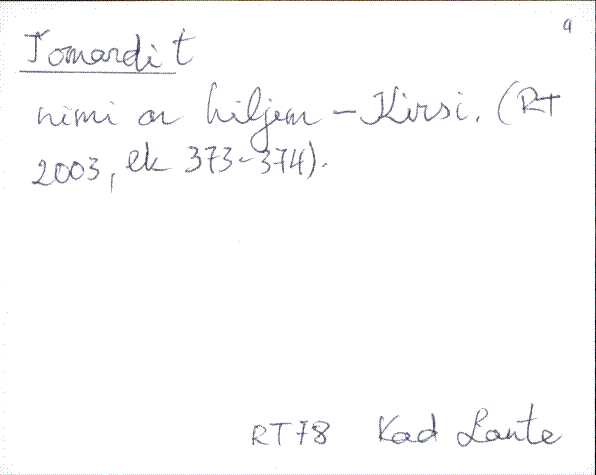 9
Tomardi t
nimi on hiljem - Kirsi. (RT
2003, lk 373-374).
RT78 Kad Lante